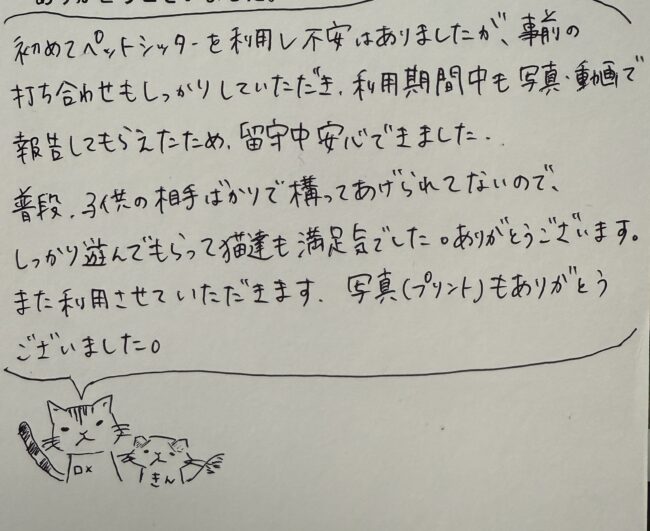 ありがとうございました。
初めてペットシッターを利用し不安はありましたが、事前の
打ち合わせもしっかりしていただき、利用期間中も写真・動画で
報告してもらえたため、留守中安心できました.
普段、子供の相手ばかりで構ってあげられてないので、
しっかり遊んでもらって猫達も満足気でした。ありがとうございます。
また利用させていただきます. 写真(プリント)もありがとう
ございました。
DX
きん